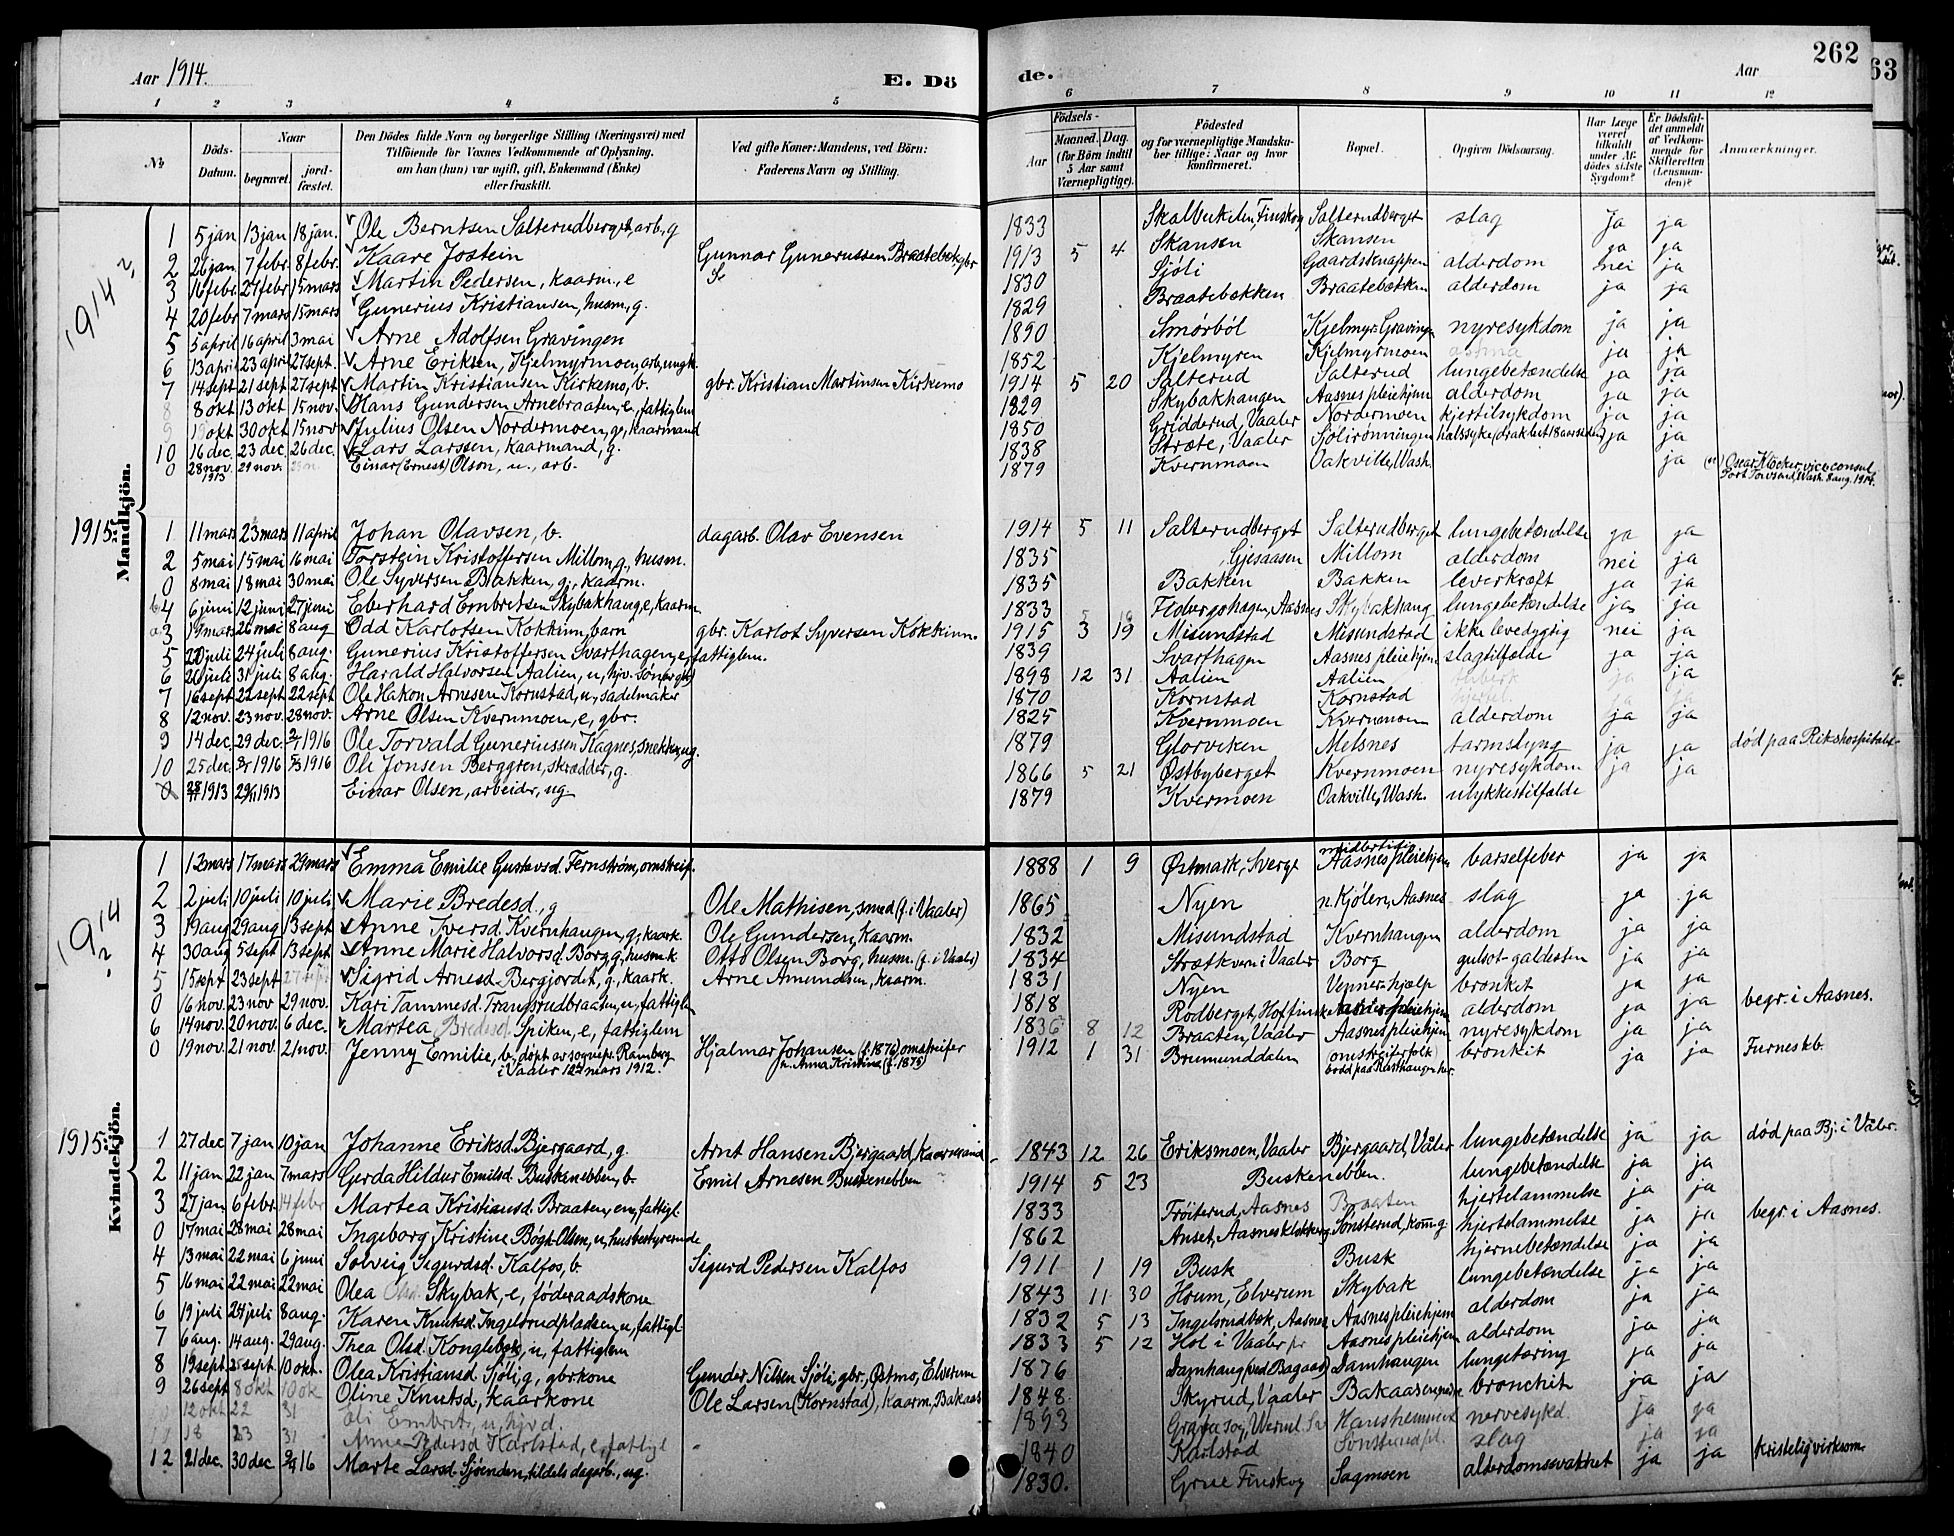 Aar 1914.
E. Dö
de.
Aar
262
63
1 2 3 4 5 6 7 8 9 10 11 12
№ Döds-Datum. Naar begravet. jord-fæstet. Den Dödes fulde Navn og borgerlige Stilling (Næringsvei) med Tilföiende for Voxnes Vedkommende af Oplysning, om han (hun) var ugift, gift, Enkemand (Enke) eller fraskilt. Ved gifte Koner: Mandens, ved Börn: Faderens Navn og Stilling. Födsels- Aar Maaned. Dag. (for Börn indtil 5 Aar samt Værnepligtige). Födested og for værnepligtige Mandskaber tillige: Naar og hvor konfirmeret. Bopæl. Opgiven Dödsaarsag. Har Læge været tilkaldt under Afdödes sidste Sygdom? Er Dödsfaldet anmeldt af Vedkommende for Skifteretten (Lensmanden)? Anmærkninger.
Mandkjön.
1914
1 5 jan 13 jan 18 jan. Ole Berntsen Salterudberget, arb, g 1833 Skalbukilen, Finskog Salterudberget slag Ja ja
2 26 jan. 7 febr. 8 febr. Kaare Jostein Gunnar Gunerussen Braatebek, gbr 1913 5 4 Skansen Skansen ja ja
3 16 febr. 27 febr 15 mars Martin Pedersen, kaarm., e 1830 Sjöli Gaardsknappen alderdom nei ja
4 20 febr 7 mars 15 mars Gunerius Kristiansen, husm, g. 1829 Braatebækken Braatebækken alderdom ja ja
5 5 april 16 april 3 mai Arne Adolfsen Gravingen 1890 Smörböl Kjelmyr-Gravingen nyresykdom ja ja
6 13 april 23 april 27 sept. Arne Eriksen, Kjelmyrmoen, arb, ungk. 1852 Kjelmyren Kjelmyrmoen astma ja ja
7 14 sept 21 sept 27 sept Martin Kristiansen Kirkemo, b. gbr. Kristian Martinsen Kirkemo 1914 5 20 Salterud Salterud lungebetændelse ja ja
8 8 okt 13 okt 15 nov. Hans Gundersen Arnebraaten, e, fattiglem 1829 Skybakhangen Aasnes pleiehjem alderdom ja ja
9 okt 30 okt 15 nov Julius Olsen Nordermoen, g, kaarmand 1850 Gridderud, Vaaler Nordermoen kjertilsykdom ja ja
10 16 dec. 23 dec. 26 dec. Lars Larssen, kaarmand, g. 1838 Stræte, Vaaler Sjölirönningen halssyke ja ja
0 28 nov. 1913 29 nov. Einar (Ernest) Olson, u., arb. 1879 Kvernmoen Oakville, Wash. ja Oscar Klocker, viceconsul Port Townsend, Wash. 8 aug. 1914.
1915:
1 11 mars 23 mars 11 april Johan Olavsen, b. dagarb. Olav Evensen 1914 5 11 Salterudberget Salterudberget lungebetændelse ja ja
2 5 mai 15 mai 16 mai Torstein Kristoffersen Millom, g, husm. 1835 Gjesaasen Millom alderdom nei ja
0 8 mai 18 mai 30 mai Ole Syversen Bakken, g., kaarm. 1835 Bakken Bakken leverkræft ja ja
b 4 6 juni 12 juni 27 juni Eberhard Embretsen Skybakhang, e, kaarm. 1833 5 19 Flobergshagen, Aasnes Skybakhang lungebetændelse ja ja
a 3 19 mars 26 mai 8 aug Odd Karlotsen Kokkim, barn gbr. Karlot Syversen Kokkinn. 1915 3 19 Misundstad Misundstad ikke levedygtig nei ja
5 20 juli 24 juli 8 aug. Gunerius Kristoffersen Svarthagen, e, fattiglem. 1839 Svarthagen Aasnes pleiehjem slagtilfælde ja ja
6 26 juli 31 juli 8 aug. Harald Halvorsen Aalien, u, 1898 12 31 Aalien Aalien tuberk ja ja
7 16 sept 22 sept 22 sept Ole Hakon Arnesen Kornstad, u, sadelmaker 1870 Kornstad Kornstad ja ja
8 12 nov. 23 nov. 28 nov. Arne Olsen Kvernmoen, e, gbr. 1825 Kvernmoen Kvernmoen alderdom ja ja
9 14 dec. 29 dec. 2/1 1916 Ole Torvald Guneriussen Kagnes, snekker, ug. 1879 Glorviken Melsnes tarmslyng ja ja död paa Rikshospitalet
10 25 dec. 2/1 1916 5/3 1916 Ole Jonsen Berggren, skrædder, g. 1866 5 21 Östbyberget Kvernmoen nyresykdom ja ja
0 28/11 1913 29/11 1913 Einar Olsen, arbeidr, ug. 1879 Kvernmoen Oakville, Wash. ulykkestilfælde
Kvindekjön.
1914
1 12 mars 17 mars 29 mars Emma Emilie Gustavsd. Fernström, omstreif. 1888 1 9 Östmark, Sverge midlertidig Aasnes pleiehjem barselfeber ja ja
2 2 juli 10 juli 10 juli Marie Bredesd., g Ole Mathisen, smed (f. i Vaaler) 1865 Nyen n. Kjölen, Aasnes slag ja ja
3 19 aug 29 aug 13 sept. Anne Iversd. Kvernhaugen, g., kaark. Ole Gundersen, kaarm. 1832 Misundstad Kvernhangen alderdom ja ja
4 30 aug 5 sept 13 sept. Anne Marie Halvorsd. Borg, g, husm.k Otto Olsen Borg, husm. (f. i Vaaler) 1834 Strætkvern i Vaaler Borg gulsot-galdesten ja ja
5 15 sept 23 sept 27 sept Sigrid Arnesd. Bergjordet, g., kaark. Arne Amundsen, kaarm. 1831 Nyen Vepnerhjælp bronkit ja ja
0 16 nov. 23 nov 29 nov. Kari Tammesd. Trangsrudbraaten, u, fattigl. 1818 Rödberget, Hof finsk Aasnes pleiehjem alderdom ja ja begr. i Aasnes.
6 14 nov. 20 nov. 6 dec. Martea Bredesd. Spiken, e, fattiglem 1836 8 12 Braaten, Vaaler Aasnes pleiehjem nyresykdom ja ja
0 19 nov. 21 nov. 21 nov. Jenny Emilie, b, döpt av sognepr. Ramberg i Vaaler 12 mars 1912. Hjalmar Johansen (f. 1876) omstreifer h. Anna Kristine (f. 1875) 1912 1 31 Brumunddalen (omstreiferfolk) bodd paa Rasthaugen her. bronkit ja ja Furnes kb.
1915:
1 27 dec 7 jan 10 jan Johanne Eriksd. Bjergaard, g. Arnt Hansen Bjergaard, kaarmand 1843 12 26 Eriksmoen, Vaaler Bjergaard, Våler lungebetændelse ja ja död paa Bj. i Våler.
2 11 jan 22 jan 7 mars Gerda Hildur Emilsd. Buskenebben, b. Emil Arnesen Buskenebben 1914 5 23 Buskenebben. lungebetændelse ja ja
3 27 jan 6 febr. 14 febr Martea Kristiansd. Braaten, en, fattigl. 1833 Fröiterud, Aasnes Braaten hjertelammelse ja ja
0 17 mai 28 mai 28 mai Ingeborg Kristine Bögh-Olsen, u, husbestyrerinde 1862 Anset, Aasnes klokkerg. Sönsterud, kom.g. hjertelammelse ja ja begr. i Aasnes.
4 13 mai 22 mai 6 juni Solveig Sigurdsd. Kalfos, b. Sigurd Pedersen Kalfos 1911 1 19 Busk Busk hjernebetændelse ja ja
5 16 mai 22 mai 22 mai Olea Olsd. Skybak, e, föderaadskone 1843 11 30 Hrum, Elverum Skybak lungebetændelse ja ja
6 19 juli 24 juli 8 aug. Karen Knutsd. Ingelsrudpladsen, u, fattigl 1832 5 13 Ingelsrudbk, Aasnes Aasnes pleiehjem alderdom ja ja
7 6 aug. 14 aug. 29 aug. Thea Olsd. Konglebæk, u, fattiglem 1833 5 12 Hol i Vaaler pr Aasnes pleiehjem alderdom ja ja
8 19 sept. 25 sept. 10 okt. Olea Kristiansd. Sjöli, g, gbrkone Gunder Nilsen Sjöli, gbr., Östmo, Elverum 1876 Damhaug (ved Bagaas) Damhangen lungetæring ja ja
9 26 sept 8 okt 10 ok Oline Knutsd., kaarkone Ole Larsen (Kornstad), kaarm, Bakaas 1848 Skyrud, Vaaler Bakaasengen bronchit ja ja
12 okt 22 31 Oli Embrets, u, hjvd. 1893 Hanshemmet nervesykd. ja ja
18 23 31 Anne Pedersd Karlstad, e, fattigl 1840 Karlstad Sönsterudpl. slag ja ja
12 21 dec. 30 dec 2/1 16 Marte Larsd. Sjöenden, tildels dagarb., ug. 1830. Grue Finskog Sagmoen alderdomssvakhet ja ja Kristelig virksom.